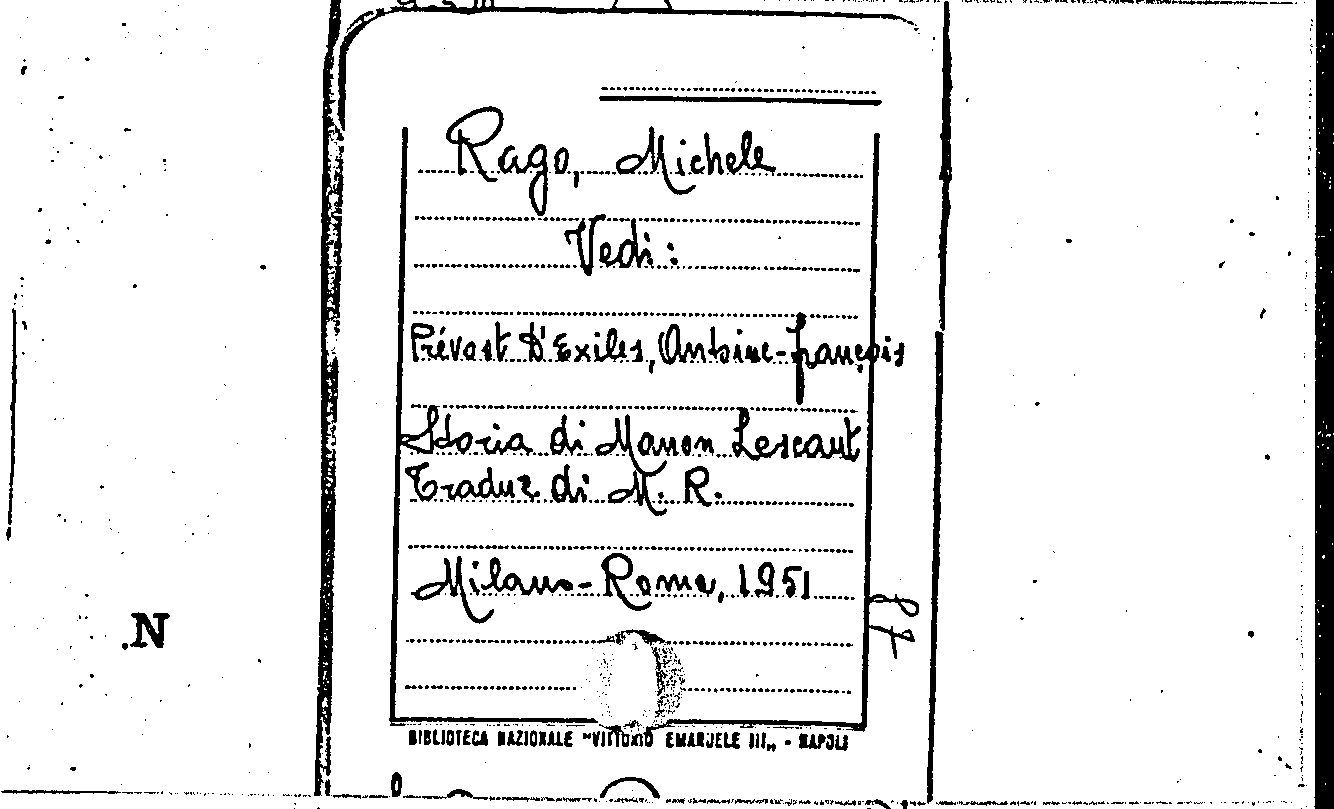 Rago, Michele
Vedi:
Prévost D'Exiles, Antoine-François
Storia di Manon Lescaut
Traduz. di M. R.
Milano-Roma, 1951
87
BIBLIOTECA NAZIONALE "VITTORIO EMANUELE III„ - NAPOLI
.N